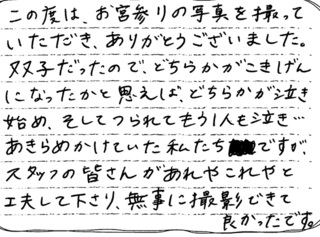 この度は、お宮参りの写真を撮って
いただき、ありがとうございました。
双子だったので、どちらかがごきげん
になったかと思えば、どちらかが泣き
始め、そしてつられてもう1人も泣き…
あきらめかけていた私たちですが、
スタッフの皆さんがあれやこれやと
工夫して下さり、無事に撮影できて
良かったです。